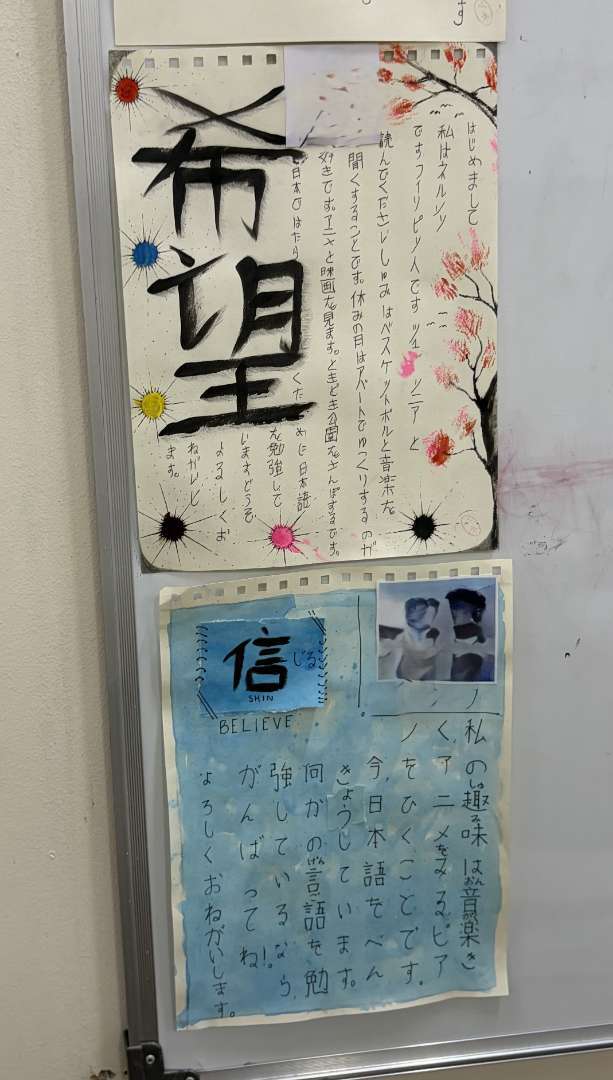 す
はじめまして
私はネルソン
です。フィリピン人です
と
読んでください。しゅみはバスケットボルと音楽を
聞くすることです。休みの日はアパートでゆっくりするのが
好きです。アニメと映画を見ます。ときどき公園をさんぽするです。
日本ではたらくために日本語
を勉強して
いますどうぞ
よろしくお
ねがいし
ます。
希望
私の趣味は音楽き
く、アニメをみるピア
ノをひくことです。
今、日本語をべん
きょうしています。
何かの言語を勉
強しているなら、
がんばってね!
よろしくおねがいします。
信じる
SHIN
BELIEVE